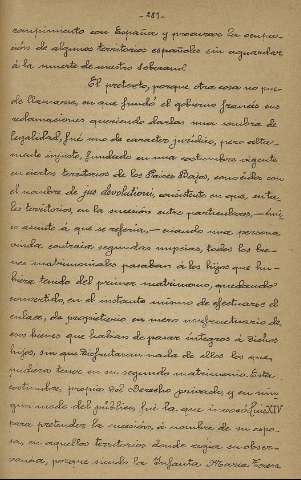 - 257 -
rompimiento con España y procurar la ocupa-
ción de algunos territorios españoles sin aguardar
á la muerte de nuestro Soberano.
El pretexto, porque otra cosa no pue-
de llamarse, en que fundó el gobierno francés sus
reclamaciones queriendo darlas una sombra de
legalidad, fué uno de caracter jurídico, pero alta-
mente injusto, fundado en una costumbre vigente
en ciertos territorios de los Paises Bajos, conocida con
el nombre de jus devolutioni, consistente en que, en ta-
les territorios, en la sucesión entre particulares, —úni-
co asunto á que se refería,— cuando una persona
viuda contraia segundas nupcias, todos los bie-
nes matrimoniales pasaban á los hijos que hu-
biera tenido del primer matrimonio, quedando
convertido, en el instante mismo de efectuarse el
enlace, de propietario en mero usufructuario de
esos bienes que habían de pasar integros á dichos
hijos, sin que disfrutaran nada de ellos los que
pudiera tener en su segundo matrimonio. Esta
costumbre, propia del Derecho privado y en nin-
gun modo del público, fué la que invocó Luis XIV
para pretender la sucesión, á nombre de su espo-
sa, en aquellos territorios donde regía su obser-
vancia, porque siendo la Infanta Maria Teresa